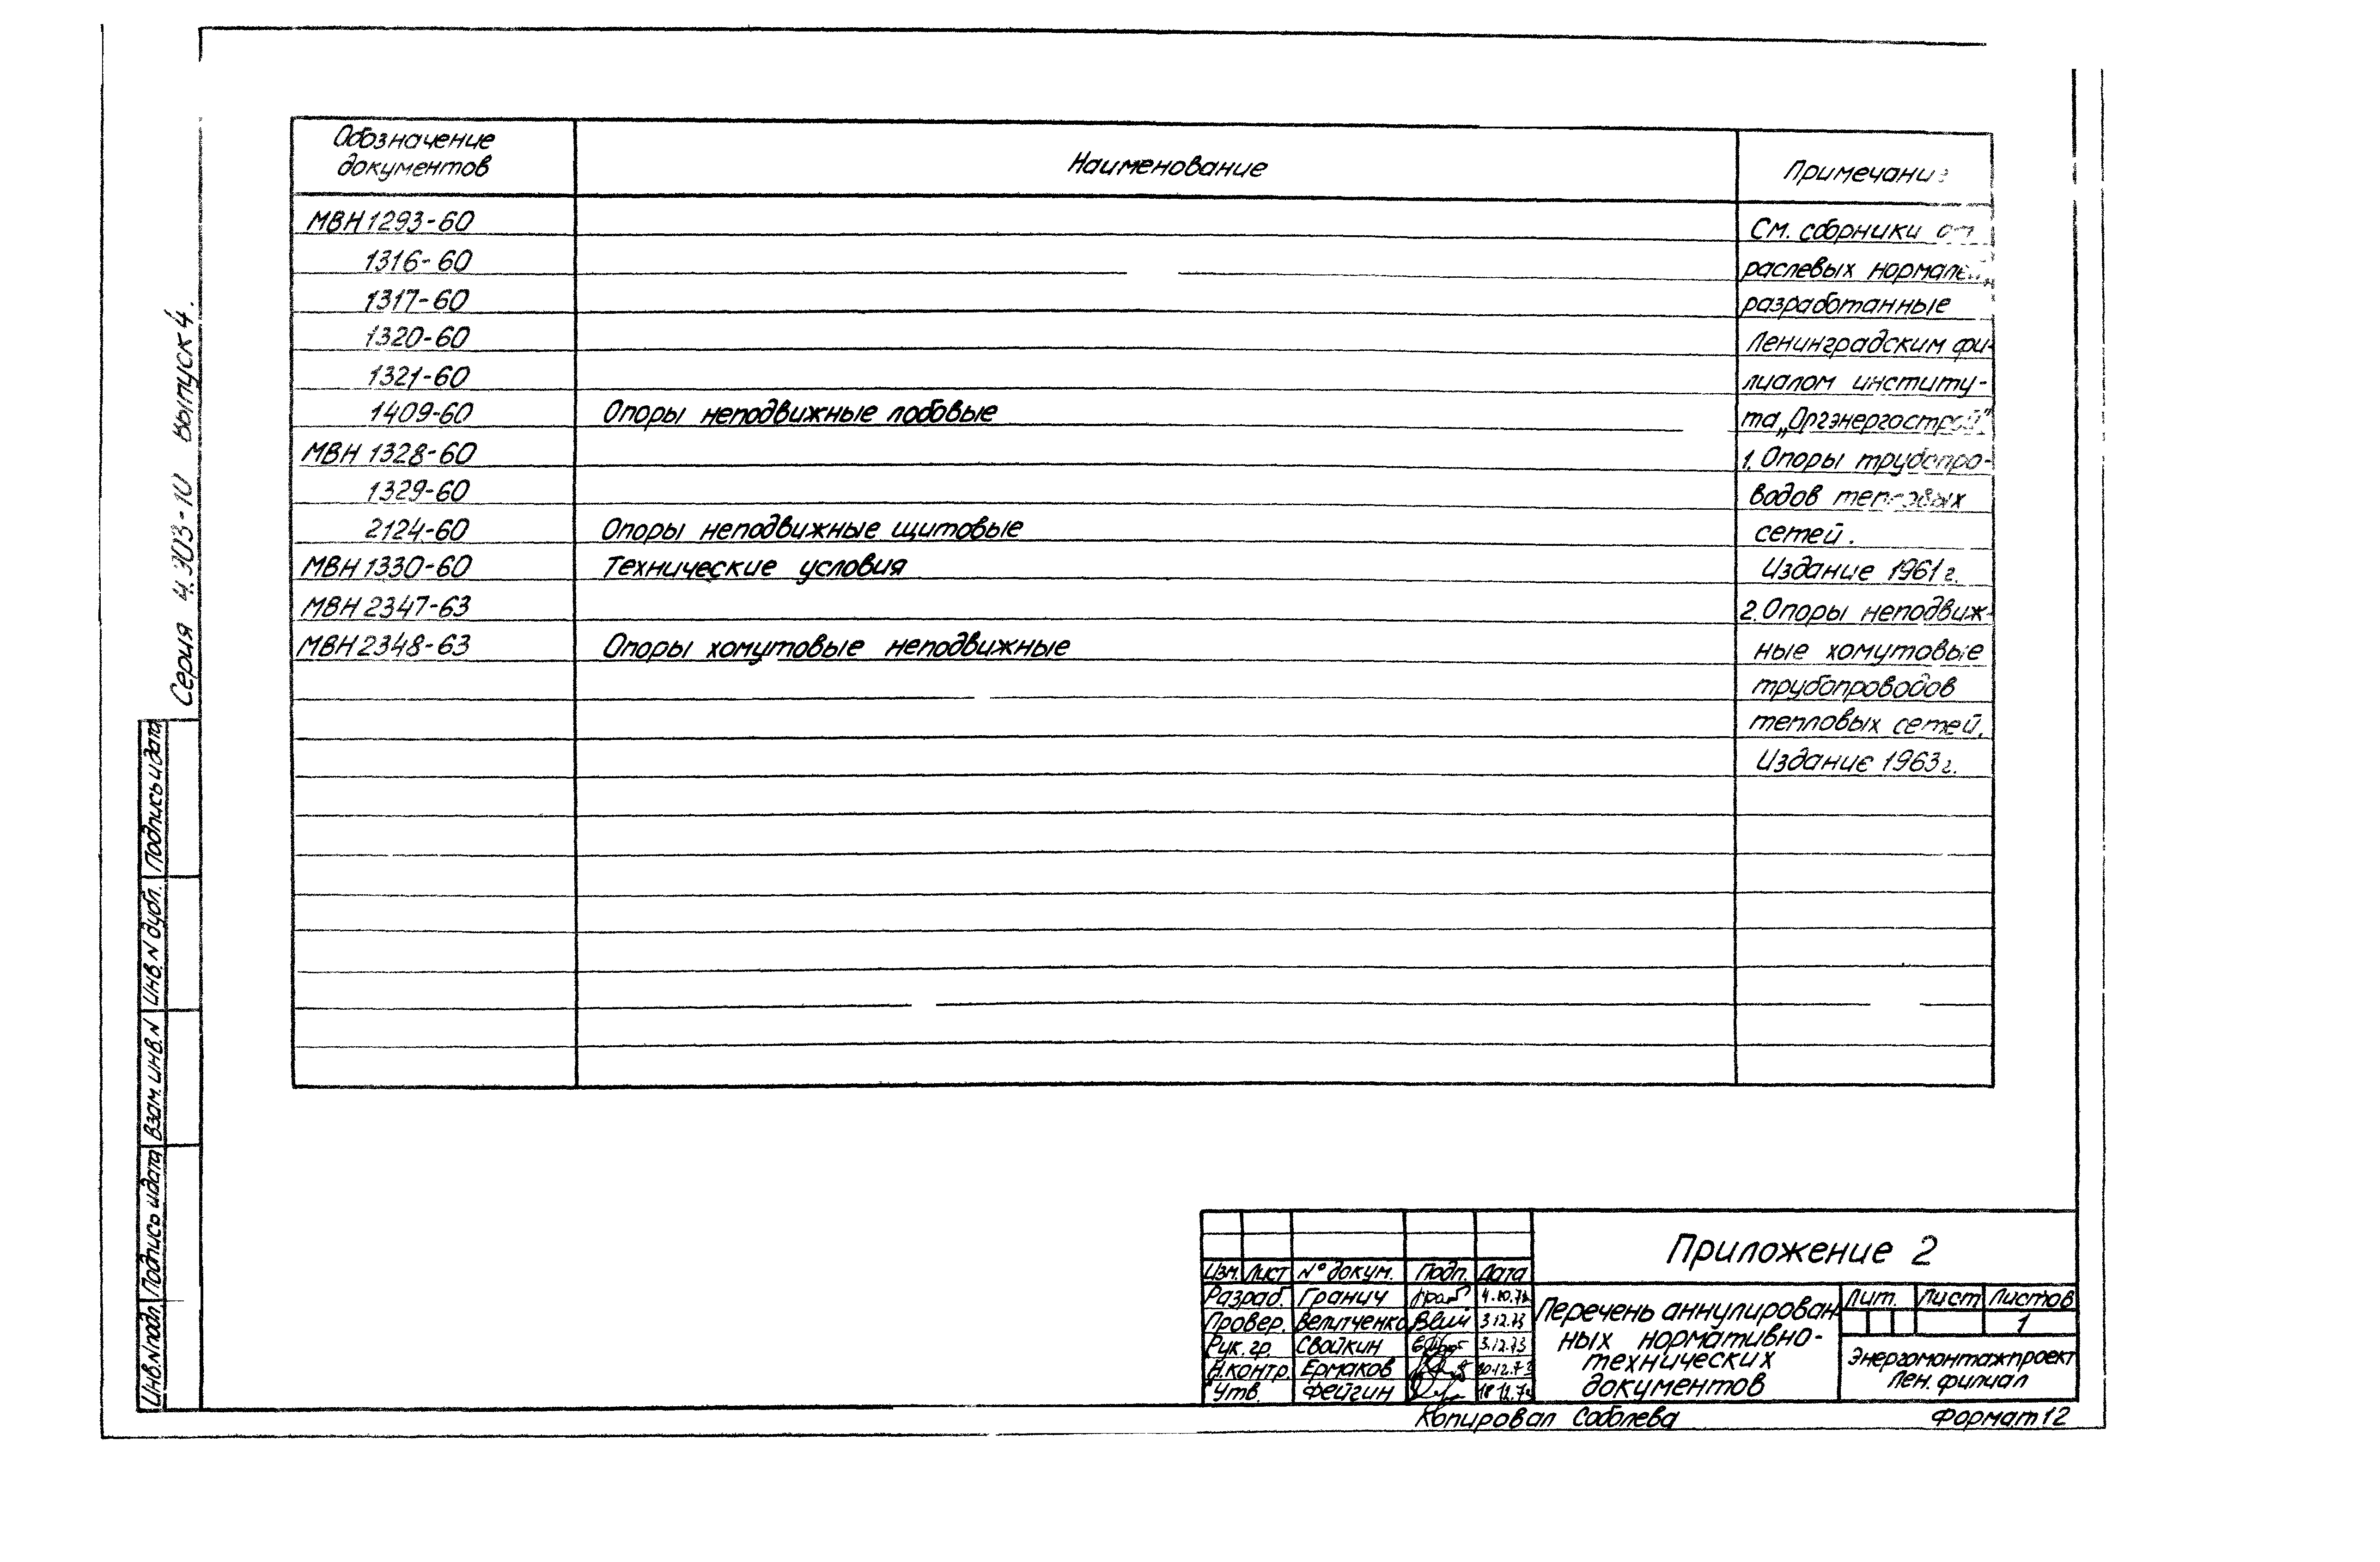 Обозначение
документов
Наименование
Примечание
МВН 1293-60
См. сборники от
1316-60
раслевых нормалей,
1317-60
разработанные
1320-60
Ленинградским фи-
1321-60
лиалом институ-
1409-60 Опоры неподвижные лобовые
та „Оргэнергострой".
МВН 1328-60
1. Опоры трубопро-
1329-60
водов тепловых
2124-60 Опоры неподвижные щитовые
сетей.
МВН 1330-60 Технические условия
Издание 1961 г.
МВН 2347-63
2. Опоры неподвиж-
МВН 2348-63 Опоры хомутовые неподвижные
ные хомутовые
трубопроводов
тепловых сетей.
Издание 1963 г.
Серия 4.903-10 выпуск 4.
Подпись и дата
Инв. N дубл.
Взам. инв. N
Подпись и дата
Инв. N подл.
Приложение 2
Изм. Лист N° докум. Подп. Дата
Разраб. Гранич
Провер. Велитченко 3.12.73
Рук. гр. Свайкин 3.12.73
Н. контр. Ермаков
Утв. Фейгин
Перечень аннулирован-
ных нормативно-
технических
документов
Лит. Лист Листов
1
Энергомонтажпроект
Лен. филиал
Копировал Соболева
Формат 12